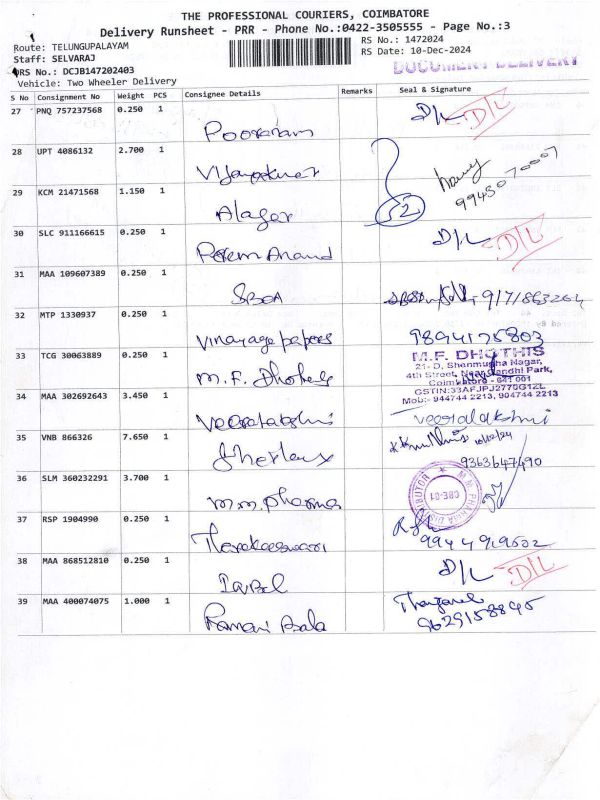 THE PROFESSIONAL COURIERS, COIMBATORE
Delivery Runsheet - PRR - Phone No.:0422-3505555 - Page No.:3
Route: TELUNGUPALAYAM
RS No.: 1472024
Staff: SELVARAJ
RS Date: 10-Dec-2024
DRS No.: DCJB147202403
DOCUMENT DELIVERY
Vehicle: Two Wheeler Delivery
S No Consignment No Weight PCS Consignee Details Remarks Seal & Signature
27 PNQ 757237568 0.250 1 D/L D/L
Pooranam
28 UPT 4086132 2.700 1
Vijayakumar
29 KCM 21471568 1.150 1 52
Alagar
30 SLC 911166615 0.250 1 D/L D/L
Prem Anand
31 MAA 109607389 0.250 1
SBOA
32 MTP 1330937 0.250 1 9894175803
Vinayaga papers
33 TCG 30063889 0.250 1 M.F. DHOTHIS
21- D, Shanmugha Nagar,
4th Street, Near Gandhi Park,
Coimbatore - 641 001
GSTIN:33AFJPJ2770G1ZL
Mob:- 944744 2213, 904744 2213
M.F. Dhothis
34 MAA 302692643 3.450 1 Veeralakshmi
Veeralakshmi
35 VNB 866326 7.650 1 10/12/24
9363647490
36 SLM 360232291 3.700 1 M.M. PHARMA DISTRIBUTOR CBE-01
M.M. pharma
37 RSP 1904990 0.250 1
Tharakeeswari
9944919602
38 MAA 868512810 0.250 1 D/L D/L
Iqbal
39 MAA 400074075 1.000 1
9629158845
Ramani Bala